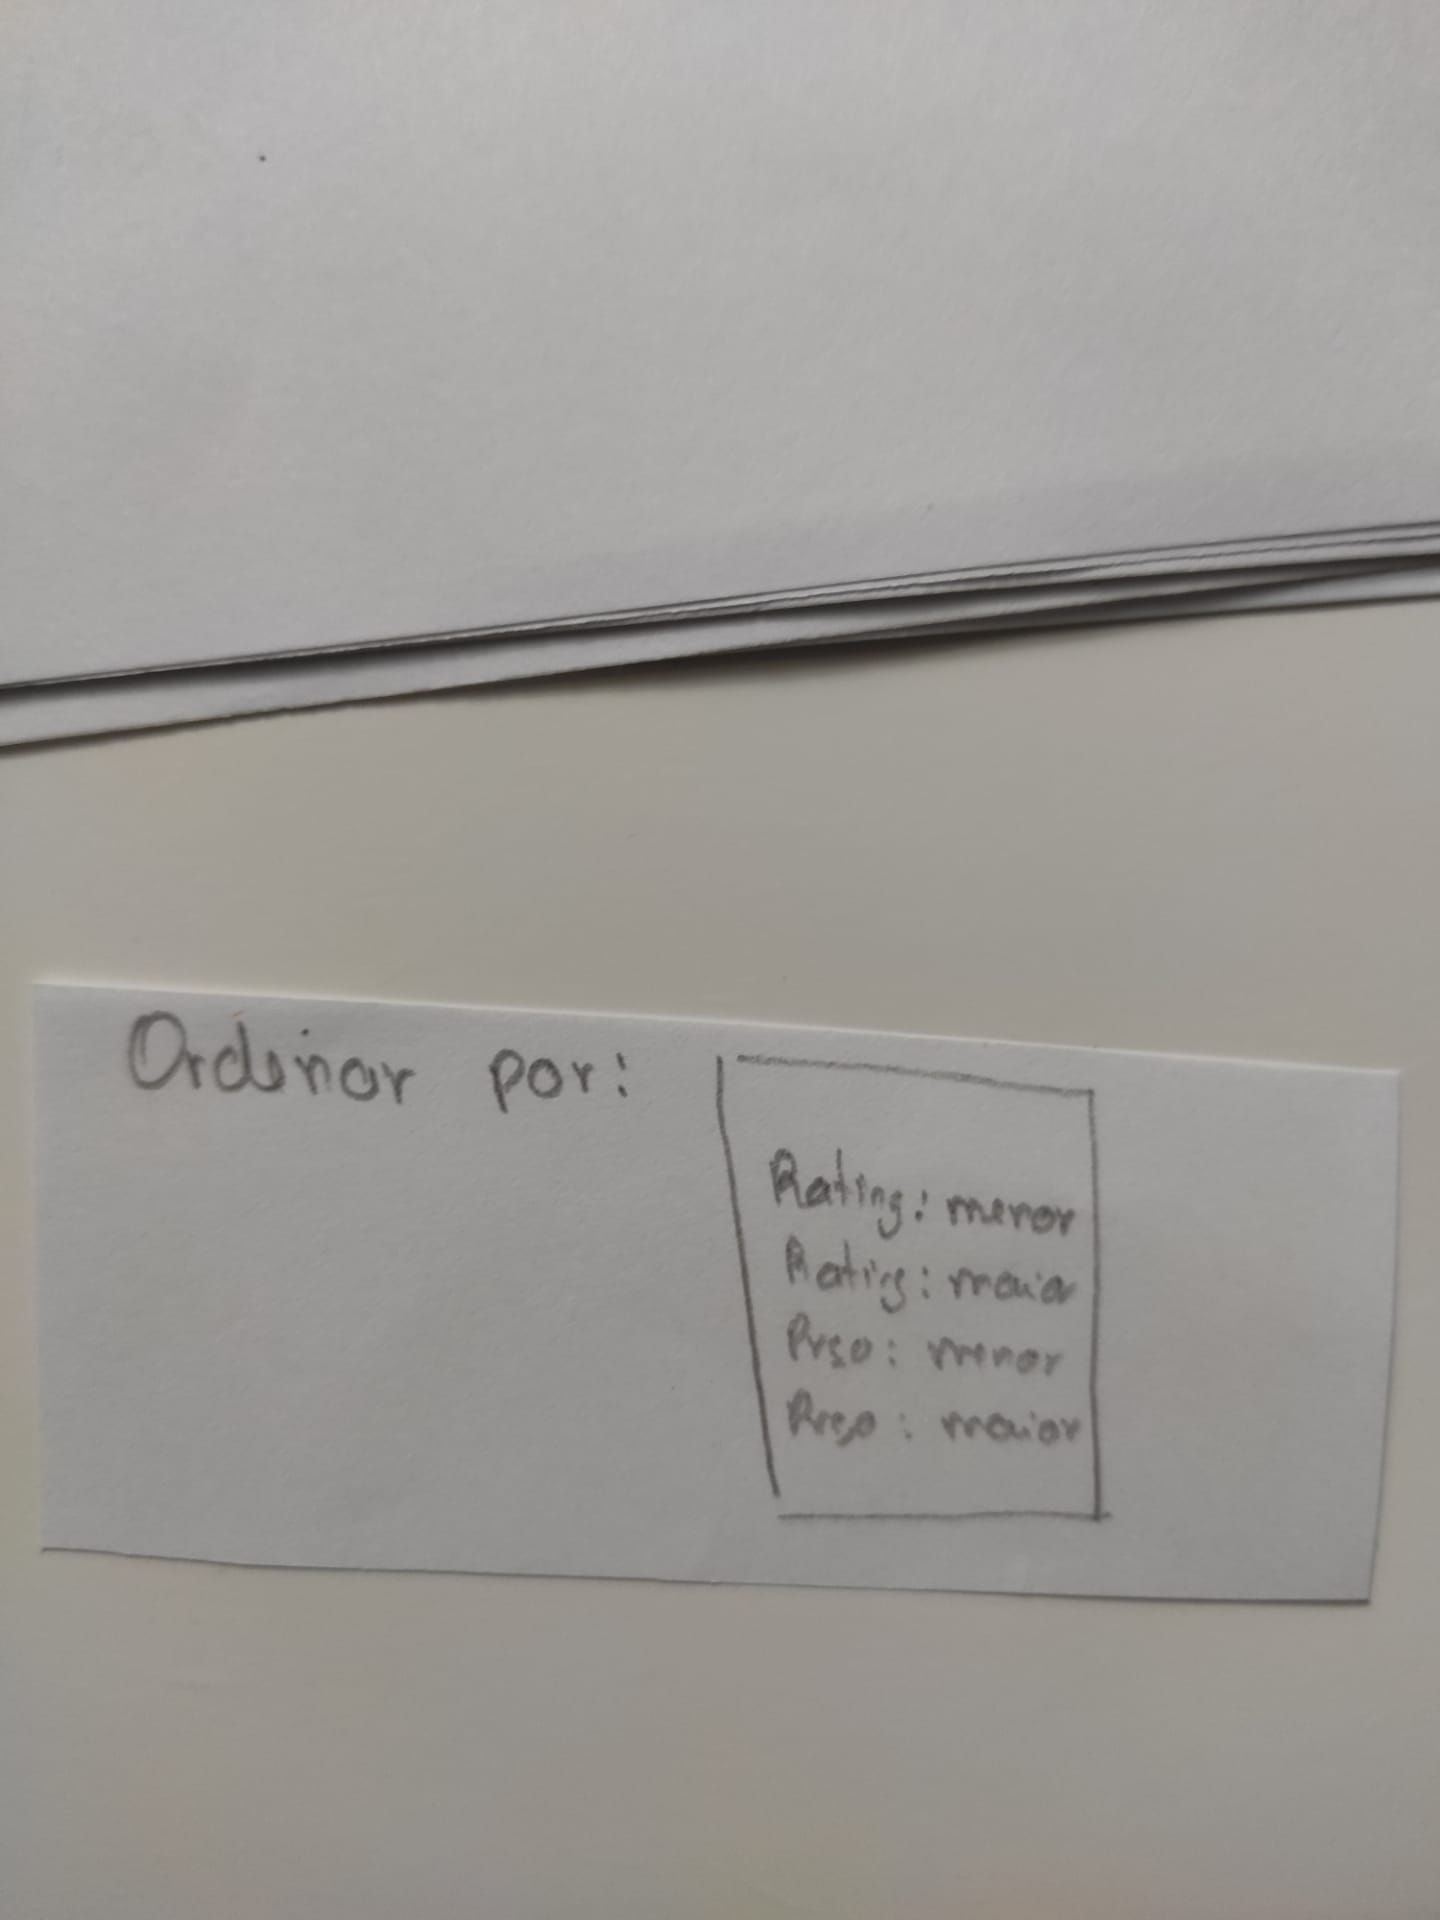 Ordenar por:
Rating: menor
Rating: maior
Preso: menor
Preso: maior